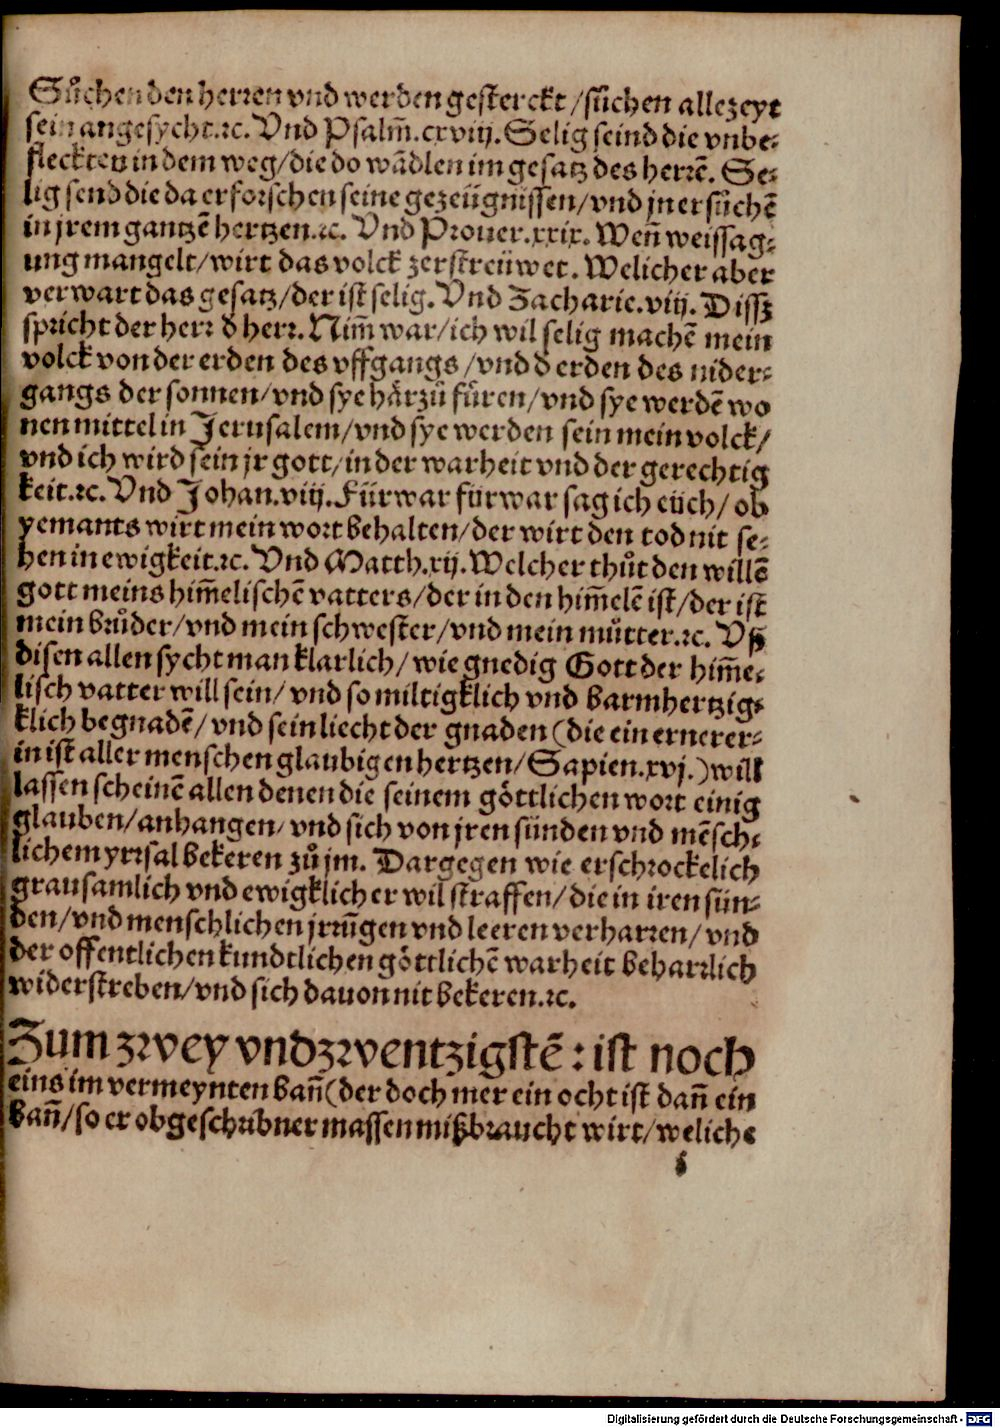 Sůchen den herren vnd werden gesterckt / sůchen allezeyt
sein angesycht.ꝛc. Vnd Psalm̃.cxviij. Selig seind die vnbe⸗
fleckten in dem weg / die do wãdlen im gesatz des herrẽ. Se⸗
lig send die da erforschen seine gezeügnissen / vnd jn ersůchẽ
in jrem gantzẽ hertzen.ꝛc. Vnd Prouer.xxix. Weñ weissag⸗
ung mangelt / wirt das volck zerstreüwet. Welicher aber
verwart das gesatz / der ist selig. Vnd Zacharie.viij. Dissz
spricht der herr d herr. Nim̃ war / ich wil selig machẽ mein
volck von der erden des vffgangs / vnd d erden des nider⸗
gangs der sonnen / vnd sye härzů fůren / vnd sye werdẽ wo
nen mittel in Jerusalem / vnd sye werden sein mein volck /
vnd ich wird sein jr gott / in der warheit vnd der gerechtig
keit.ꝛc. Vnd Johan.viij. Fürwar fürwar sag ich eüch / ob
yemants wirt mein wort behalten / der wirt den tod nit se⸗
hen in ewigkeit.ꝛc. Vnd Matth.xij. Welcher thůt den willẽ
gott meins him̃elischẽ vatters / der in den him̃elẽ ist / der ist
mein brůder / vnd mein schwester / vnd mein můtter.ꝛc. Vß
disen allen sycht man klarlich / wie gnedig Gott der him̃e⸗
lisch vatter will sein / vnd so miltigklich vnd barmhertzig⸗
klich begnadẽ / vnd sein liecht der gnaden (die ein ernerer⸗
in ist aller menschen glaubigen hertzen / Sapien.xvj.) will
lassen scheinẽ allen denen die seinem göttlichen wort einig
glauben / anhangen / vnd sich von jren sünden vnd mẽsch⸗
lichem yrrsal bekeren zů jm. Dargegen wie erschrockelich
grausamlich vnd ewigklich er wil straffen / die in iren sün⸗
den / vnd menschlichen jrrũgen vnd leeren verharren / vnd
der offentlichen kundtlichen göttlichẽ warheit beharrlich
widerstreben / vnd sich dauon nit bekeren.ꝛc.
Zum zwey vnd zwentzigstẽ : ist noch
eins im vermeynten bañ (der doch mer ein ocht ist dañ ein
bañ / so er obgeschribner massen mißbraucht wirt / weliche
Digitalisierung gefördert durch die Deutsche Forschungsgemeinschaft - DFG